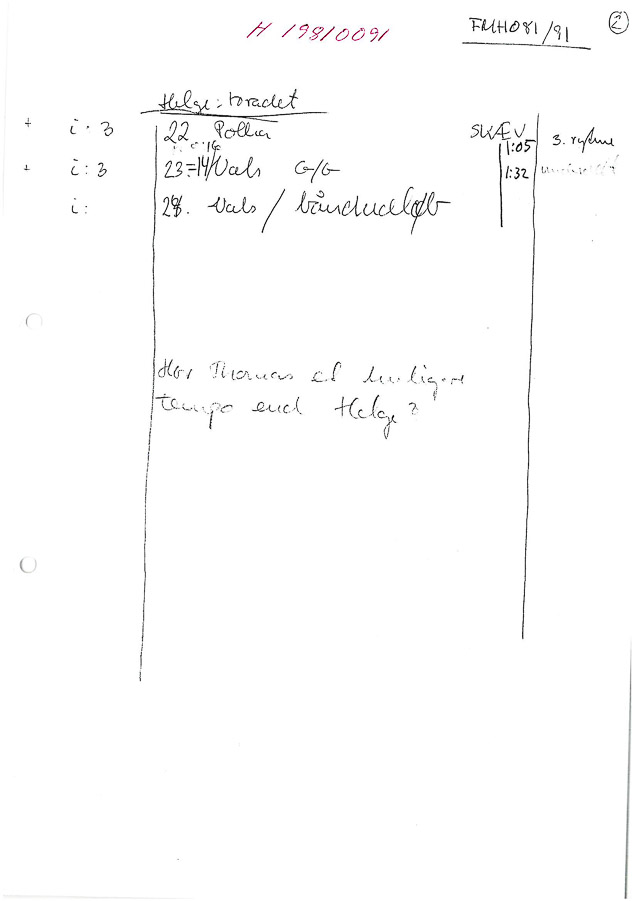 H 19810091
FMH081/91 2
Helge: toradet
+ i: 3 22 Polka SKÆV 1:05 3. rytme
+ i: 3 23=14/Vals G/G 1:32
i: 24. Vals / båndudløb
Har Thomas et hurtigere
tempo end Helge?